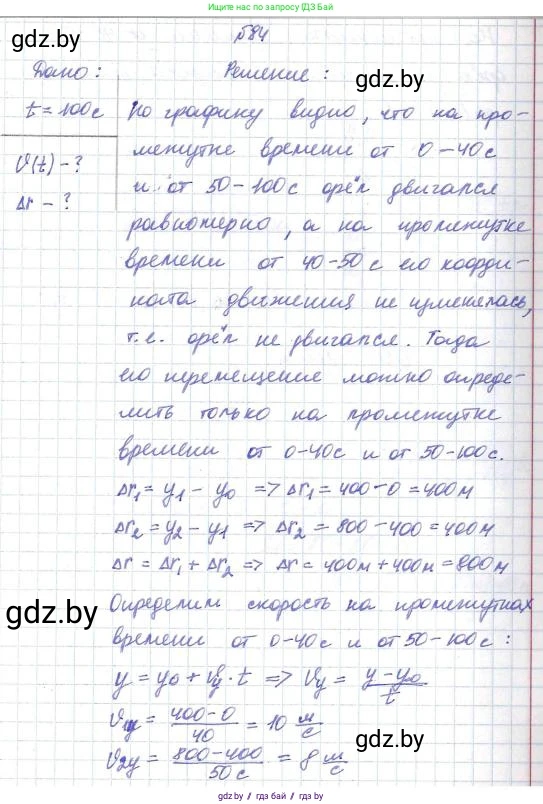 Ищите нас по запросу ГДЗ БАЙ
gdz.by
№84
Дано:
Решение:
gdz.by
t = 100 с
По графику видно, что на про-
межутке времени от 0-40 с
и от 50-100 с орёл двигался
равномерно, а на промежутке
времени от 40-50 с его коорди-
ната движения не изменялась,
т.е. орёл не двигался. Тогда
его перемещение можно опреде-
лить только на промежутке
времени от 0-40 с и от 50-100 с.
υ(t) - ?
Δr - ?
Δr₁ = y₁ - y₀ => Δr₁ = 400 - 0 = 400 м
Δr₂ = y₂ - y₁ => Δr₂ = 800 - 400 = 400 м
Δr = Δr₁ + Δr₂ => Δr = 400 м + 400 м = 800 м
gdz.by
Определим скорость на промежутках
времени от 0-40 с и от 50-100 с:
y = y₀ + υy · t => υy = (y - y₀)/t
υ₁y = (400 - 0)/40 = 10 м/с
υ₂y = (800 - 400)/50 с = 8 м/с
gdz.by
gdz.by / гдз бай / gdz.by